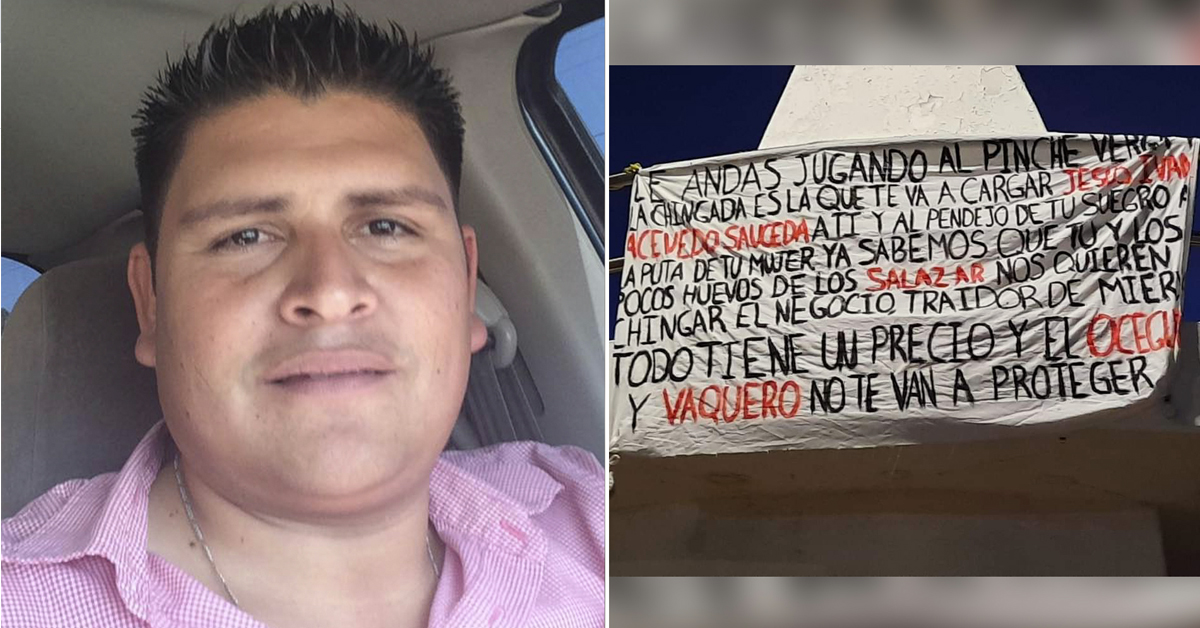 LE ANDAS JUGANDO AL PINCHE
LA CHINGADA ES LA QUE TE VA A CARGAR JESUS IVAN
ACEVEDO SAUCEDA A TI Y AL PENDEJO DE TU SUEGRO
A PUTA DE TU MUJER YA SABEMOS QUE TU Y LOS
POCOS HUEVOS DE LOS SALAZAR NOS QUIEREN
CHINGAR EL NEGOCIO TRAIDOR DE MIER
TODO TIENE UN PRECIO Y EL OCEGU
Y VAQUERO NO TE VAN A PROTEGER